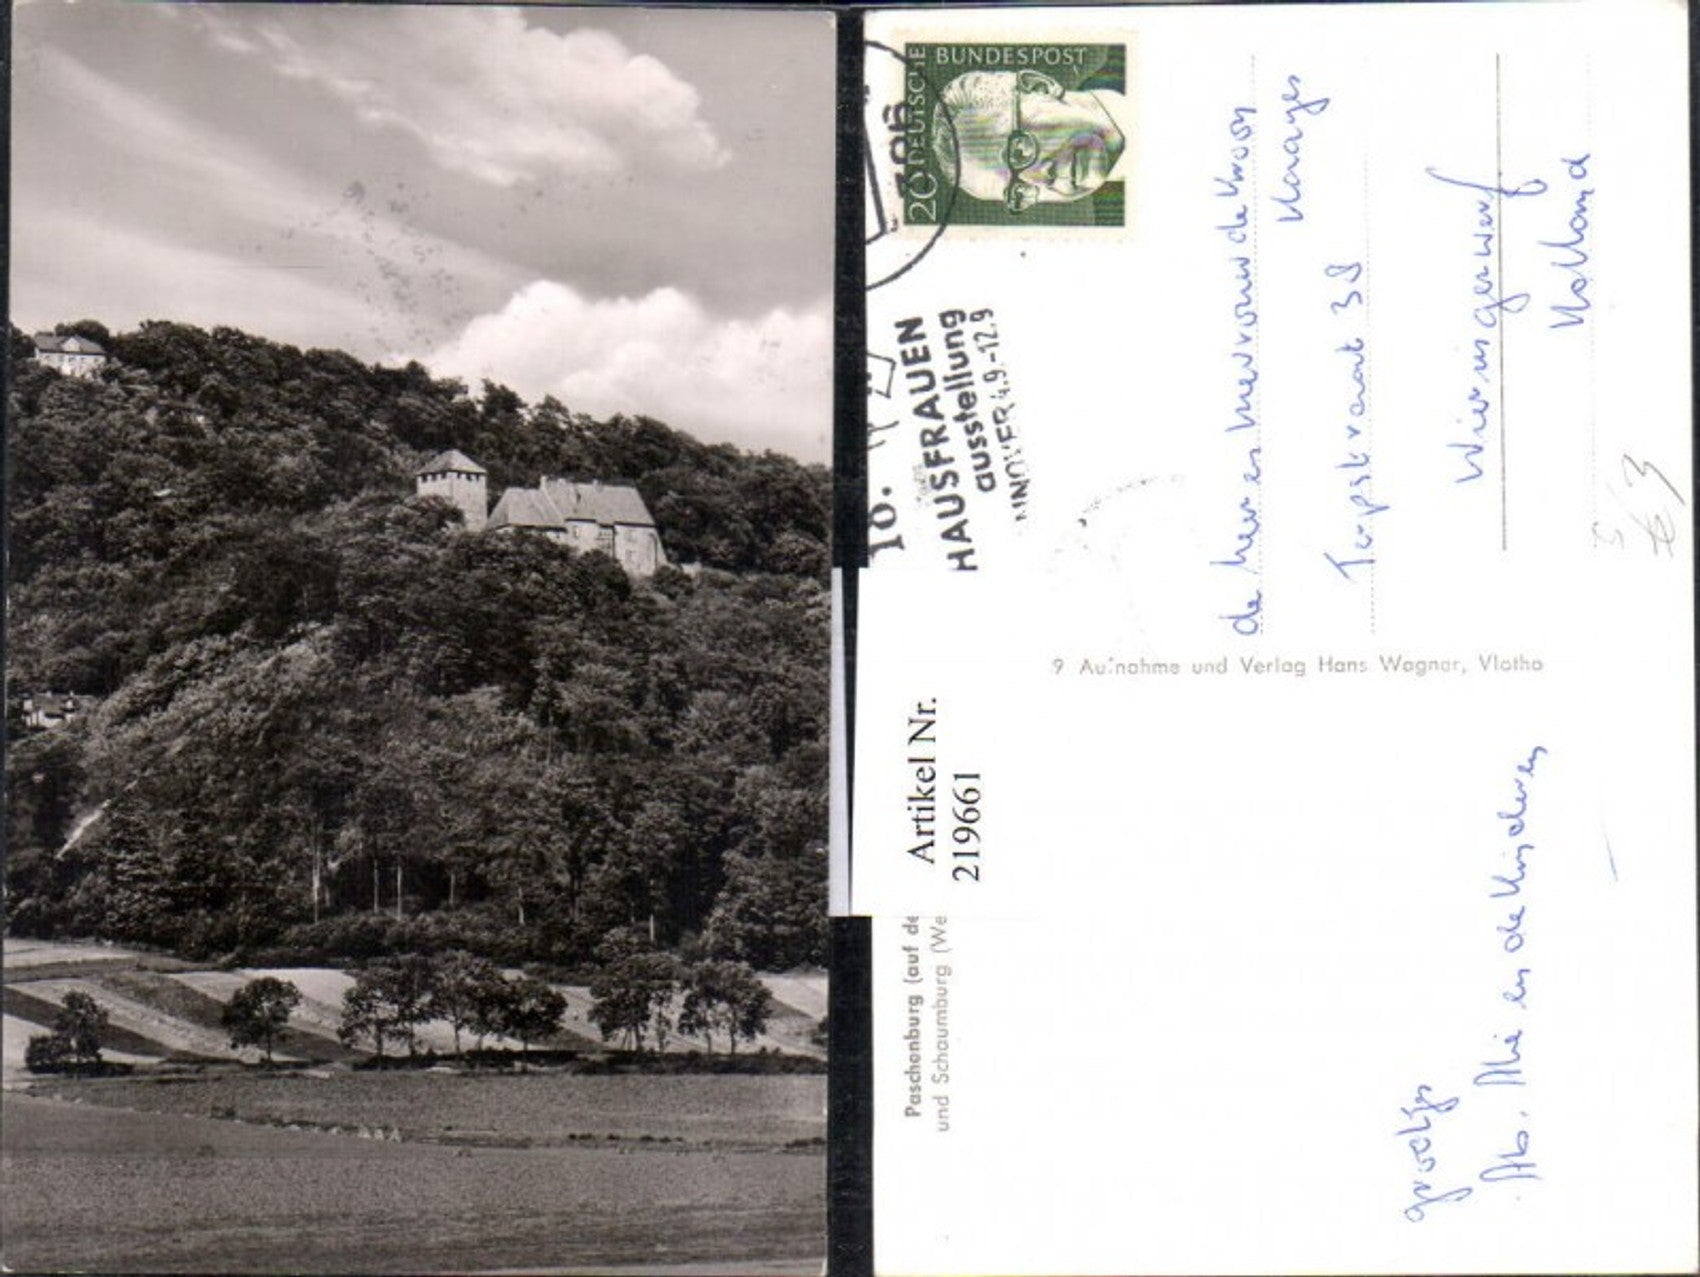 DEUTSCHE BUNDESPOST
20
HAUSFRAUEN
ausstellung
4.9.-12.9
18.
Artikel Nr.
219661
Paschenburg (auf de
und Schaumburg (We
9 Aufnahme und Verlag Hans Wagner, Vlotho
de heer en mevrouw de Kroon
Terpstraat 38
Wieringerwerf
Holland
groetjes
Ab. Mie en de kinderen